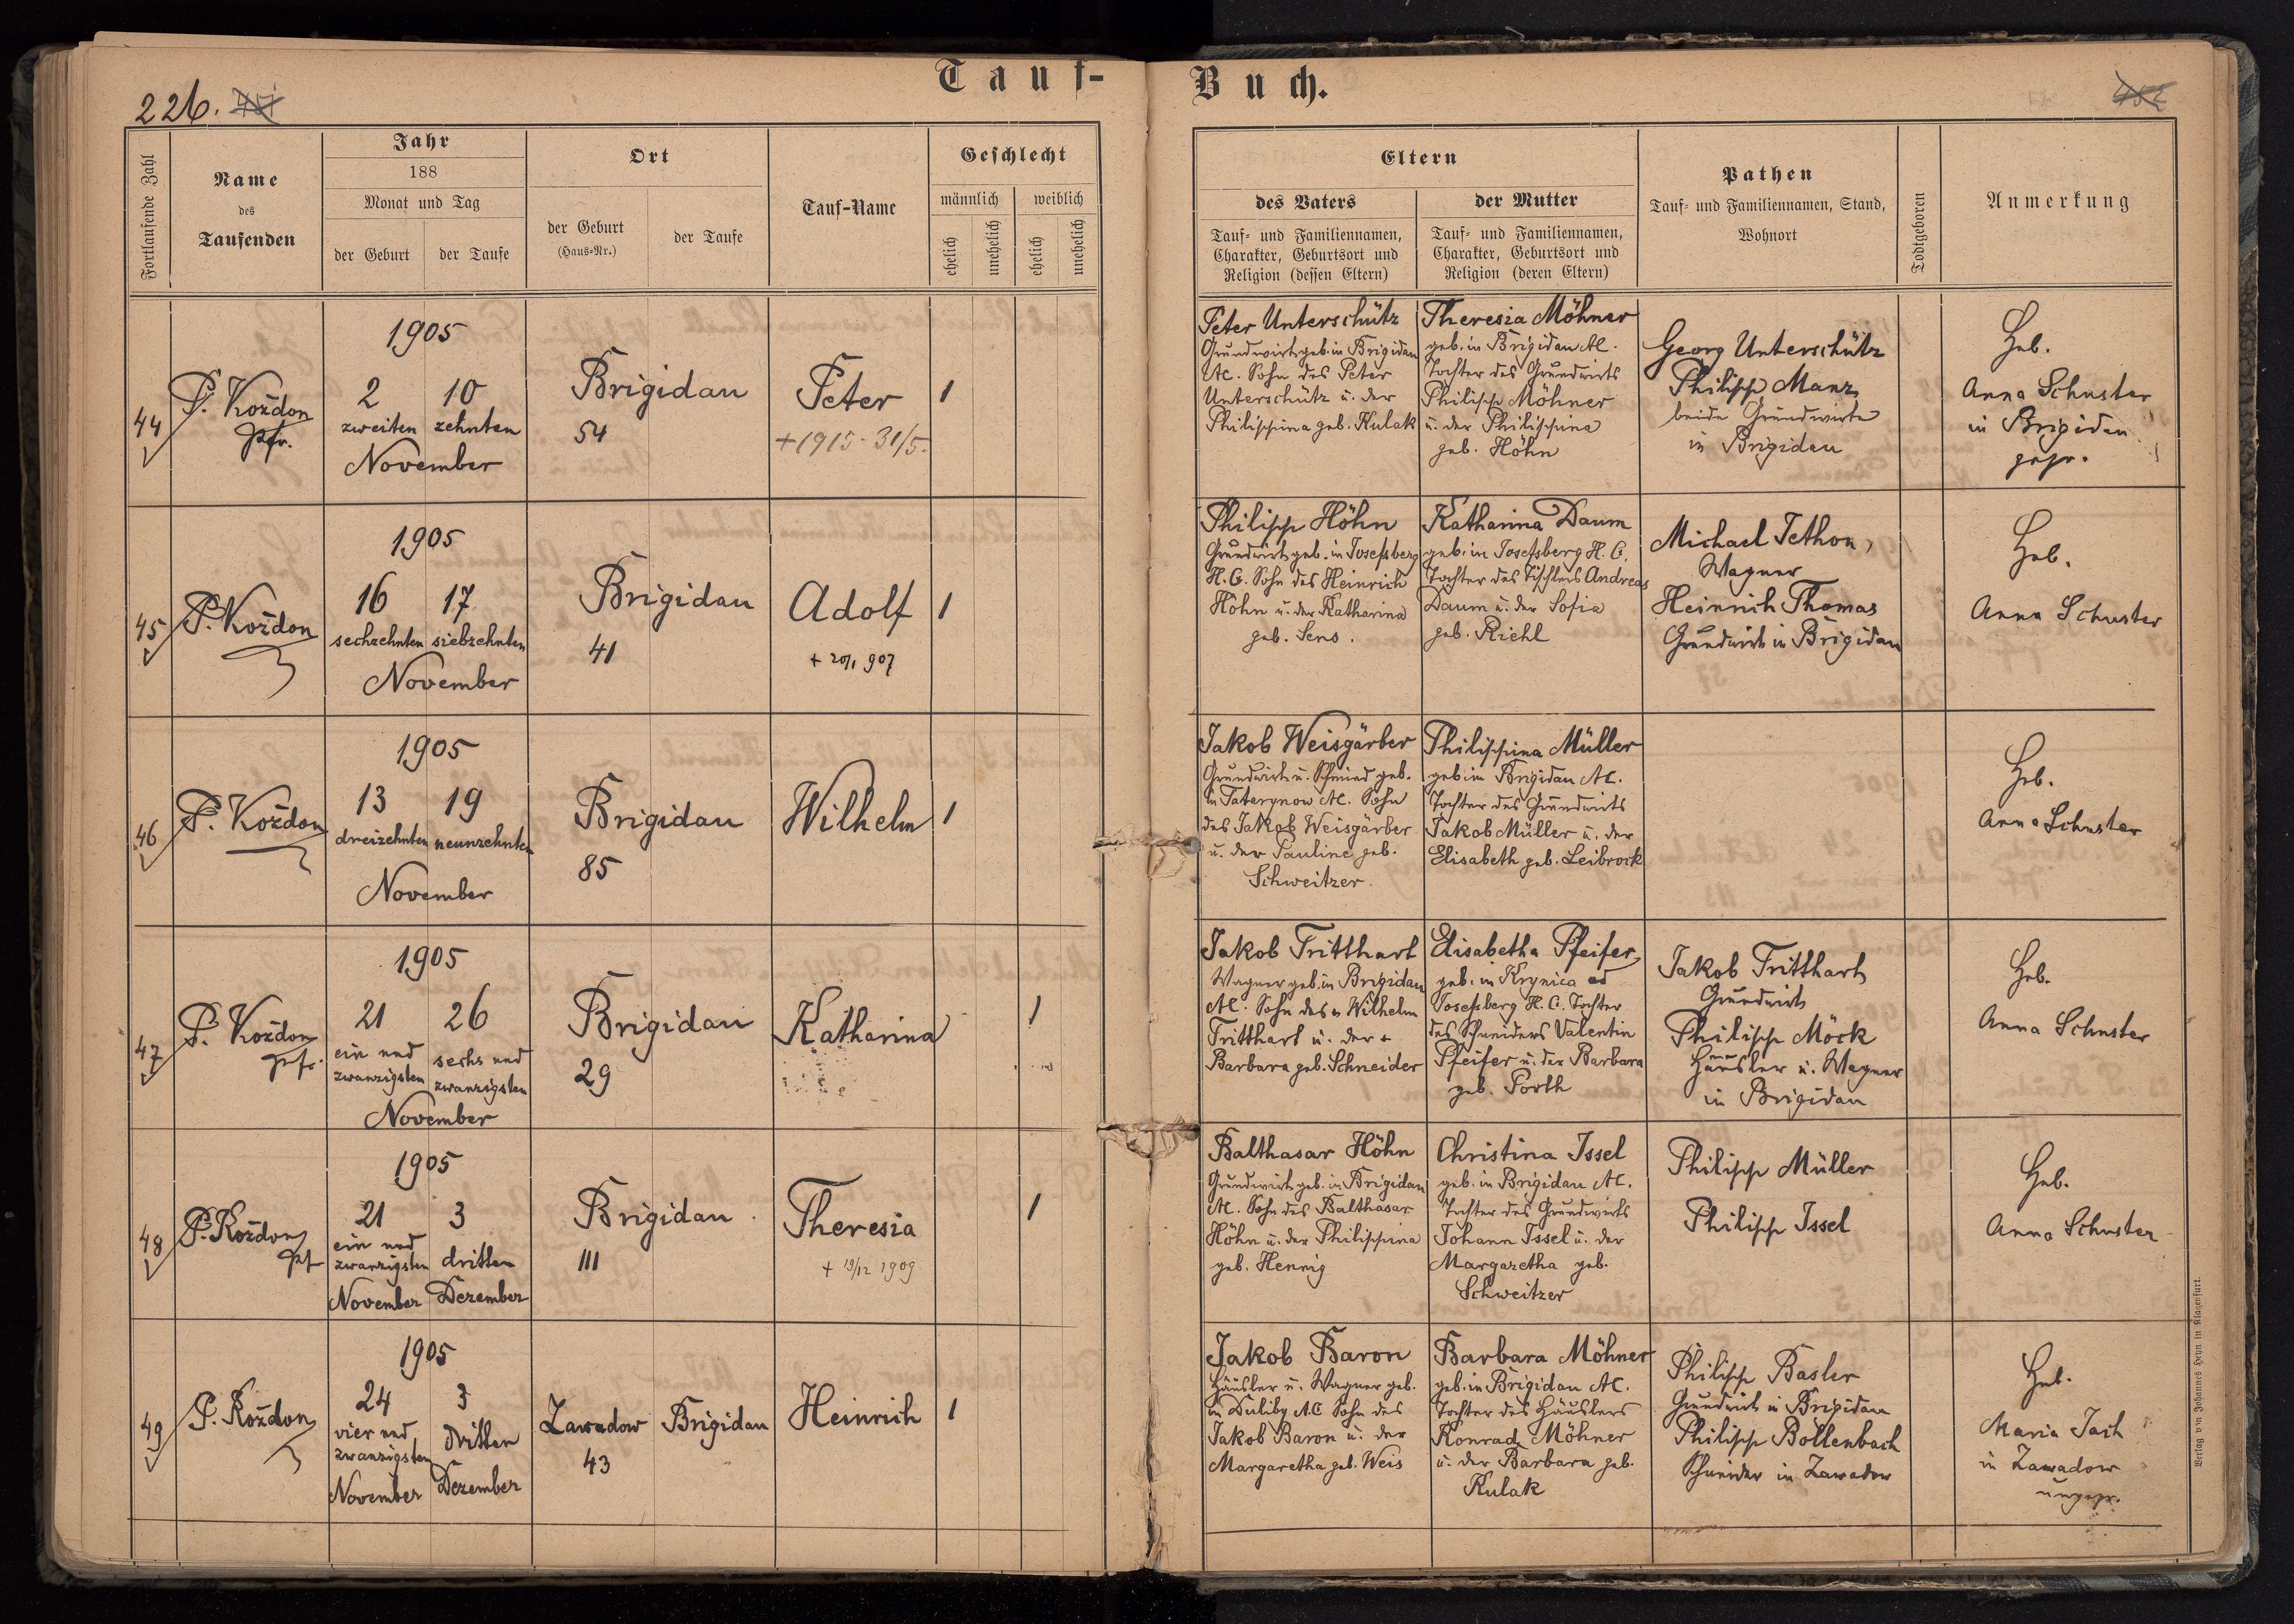 Tauf-Buch.
226.
Fortlaufende Zahl
Name
des
Taufenden
Jahr
188
Monat und Tag
der Geburt
der Taufe
Ort
der Geburt
(Haus-Nr.)
der Taufe
Tauf-Name
Geschlecht
männlich
weiblich
ehelich
unehelich
ehelich
unehelich
Eltern
des Vaters
Tauf- und Familiennamen,
Charakter, Geburtsort und
Religion (dessen Eltern)
der Mutter
Tauf- und Familiennamen,
Charakter, Geburtsort und
Religion (deren Eltern)
Pathen
Tauf- und Familiennamen, Stand,
Wohnort
Todtgeboren
Anmerkung
44
P. Koždon
pfr.
1905
2
zweiten
10
zehnten
November
Brigidau
54
Peter
+ 1915 - 31/5.
1
Peter Unterschütz
Grundwirt geb. in Brigidau
AC. Sohn des Peter
Unterschütz u. der
Philippina geb. Kulak
Theresia Möhner
geb. in Brigidau AC.
Tochter des Grundwirts
Philipp Möhner
u. der Philippina
geb. Höhn
Georg Unterschütz
Philipp Manz
beide Grundwirte
in Brigidau
Heb.
Anna Schuster
in Brigidau
gepr.
45
P. Koždon
1905
16
sechzehnten
17
siebzehnten
November
Brigidau
41
Adolf
+ 20/1 907
1
Philipp Höhn
Grundwirt geb. in Josefsberg
H.C. Sohn des Heinrich
Höhn u. der Katharina
geb. Sens.
Katharina Daum
geb. in Josefsberg H.C.
Tochter des Tischlers Andreas
Daum u. der Sofia
geb. Riehl
Michael Tethon,
Wagner
Heinrich Thomas
Grundwirt in Brigidau
Heb.
Anna Schuster
46
P. Koždon
1905
13
dreizehnten
19
neunzehnten
November
Brigidau
85
Wilhelm
1
Jakob Weisgärber
Grundwirt u. Schmied geb.
in Tatarynow AC. Sohn
des Jakob Weisgärber
u. der Pauline geb.
Schweitzer.
Philippina Müller
geb. in Brigidau AC.
Tochter des Grundwirts
Jakob Müller u. der
Elisabeth geb. Leibrock
Heb.
Anna Schuster
47
P. Koždon
pfr.
1905
21
ein und
zwanzigsten
26
sechs und
zwanzigsten
November
Brigidau
29
Katharina
1
Jakob Tritthart
Wagner geb. in Brigidau
AC. Sohn des + Wilhelm
Tritthart u. der +
Barbara geb. Schneider
Elisabetha Pfeifer
geb. in Krynica ad
Josefsberg H.C. Tochter
des Schneiders Valentin
Pfeifer u. der Barbara
geb. Porth
Jakob Tritthart
Grundwirt
Philipp Möck
Häusler u. Wagner
in Brigidau
Heb.
Anna Schuster
48
P. Koždon
pf
1905
21
ein und
zwanzigsten
November
3
dritten
Dezember
Brigidau
111
Theresia
+ 19/12 1909
1
Balthasar Höhn
Grundwirt geb. in Brigidau
AC. Sohn des Balthasar
Höhn u. der Philippina
geb. Hennig
Christina Issel
geb. in Brigidau AC.
Tochter des Grundwirts
Johann Issel u. der
Margaretha geb.
Schweitzer
Philipp Müller
Philipp Issel
Heb.
Anna Schuster
49
P. Koždon
1905
24
vier und
zwanzigsten
November
3
dritten
Dezember
Zawadow
43
Brigidau
Heinrich
1
Jakob Baron
Häusler u. Wagner geb.
in Duliby A.C. Sohn des
Jakob Baron u. der
Margaretha geb. Weis
Barbara Möhner
geb. in Brigidau AC.
Tochter des Häuslers
Konrad Möhner
u. der Barbara geb.
Kulak
Philipp Basler
Grundwirt in Brigidau
Philipp Bollenbach
Schneider in Zawadow
Heb.
Maria
in Zawadow
ungepr.
Verlag von Johannes Heyn in Klagenfurt.